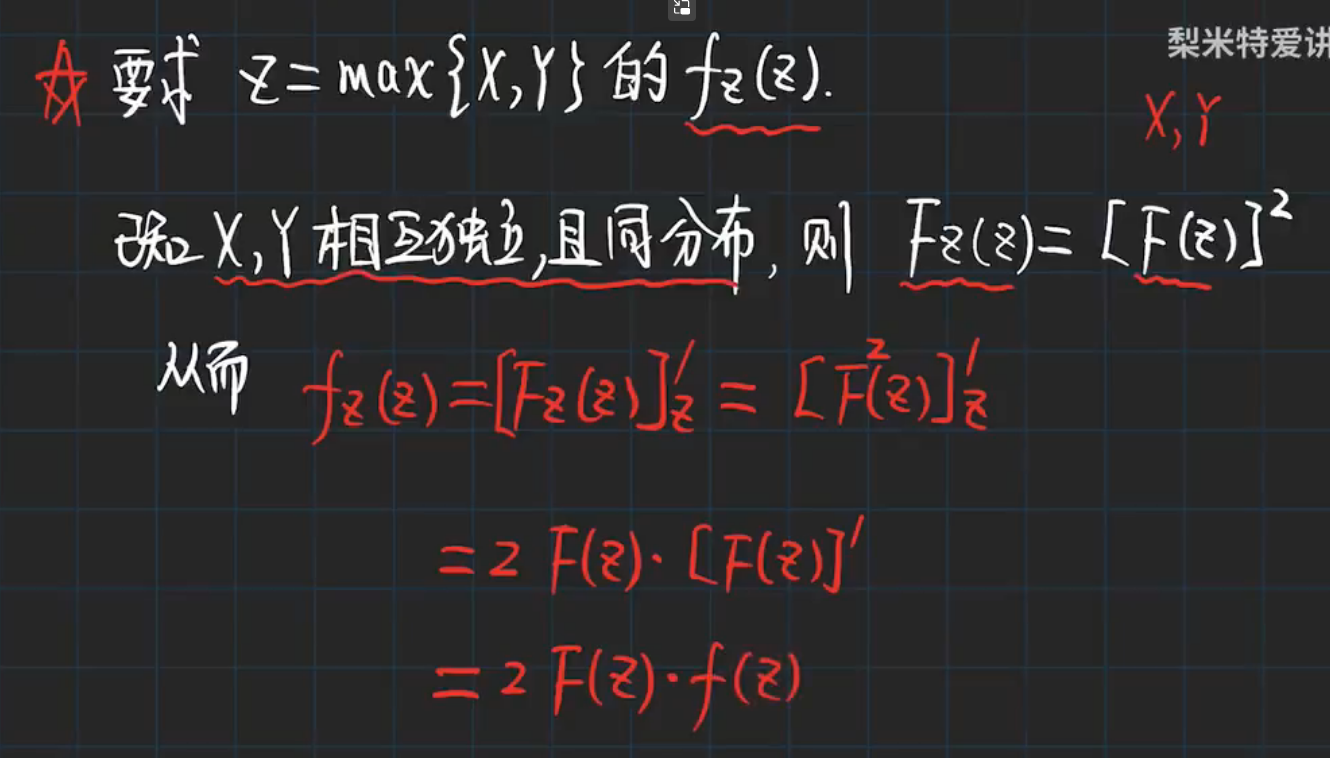 梨米特爱讲
☆ 要求 Z=max{X,Y}的 f_Z(z).
X,Y
已知 X,Y 相互独立,且同分布, 则 F_Z(z)=[F(z)]²
从而 f_Z(z)=[F_Z(z)]'_z = [F²(z)]'_z
=2 F(z)·[F(z)]'
=2 F(z)·f(z)